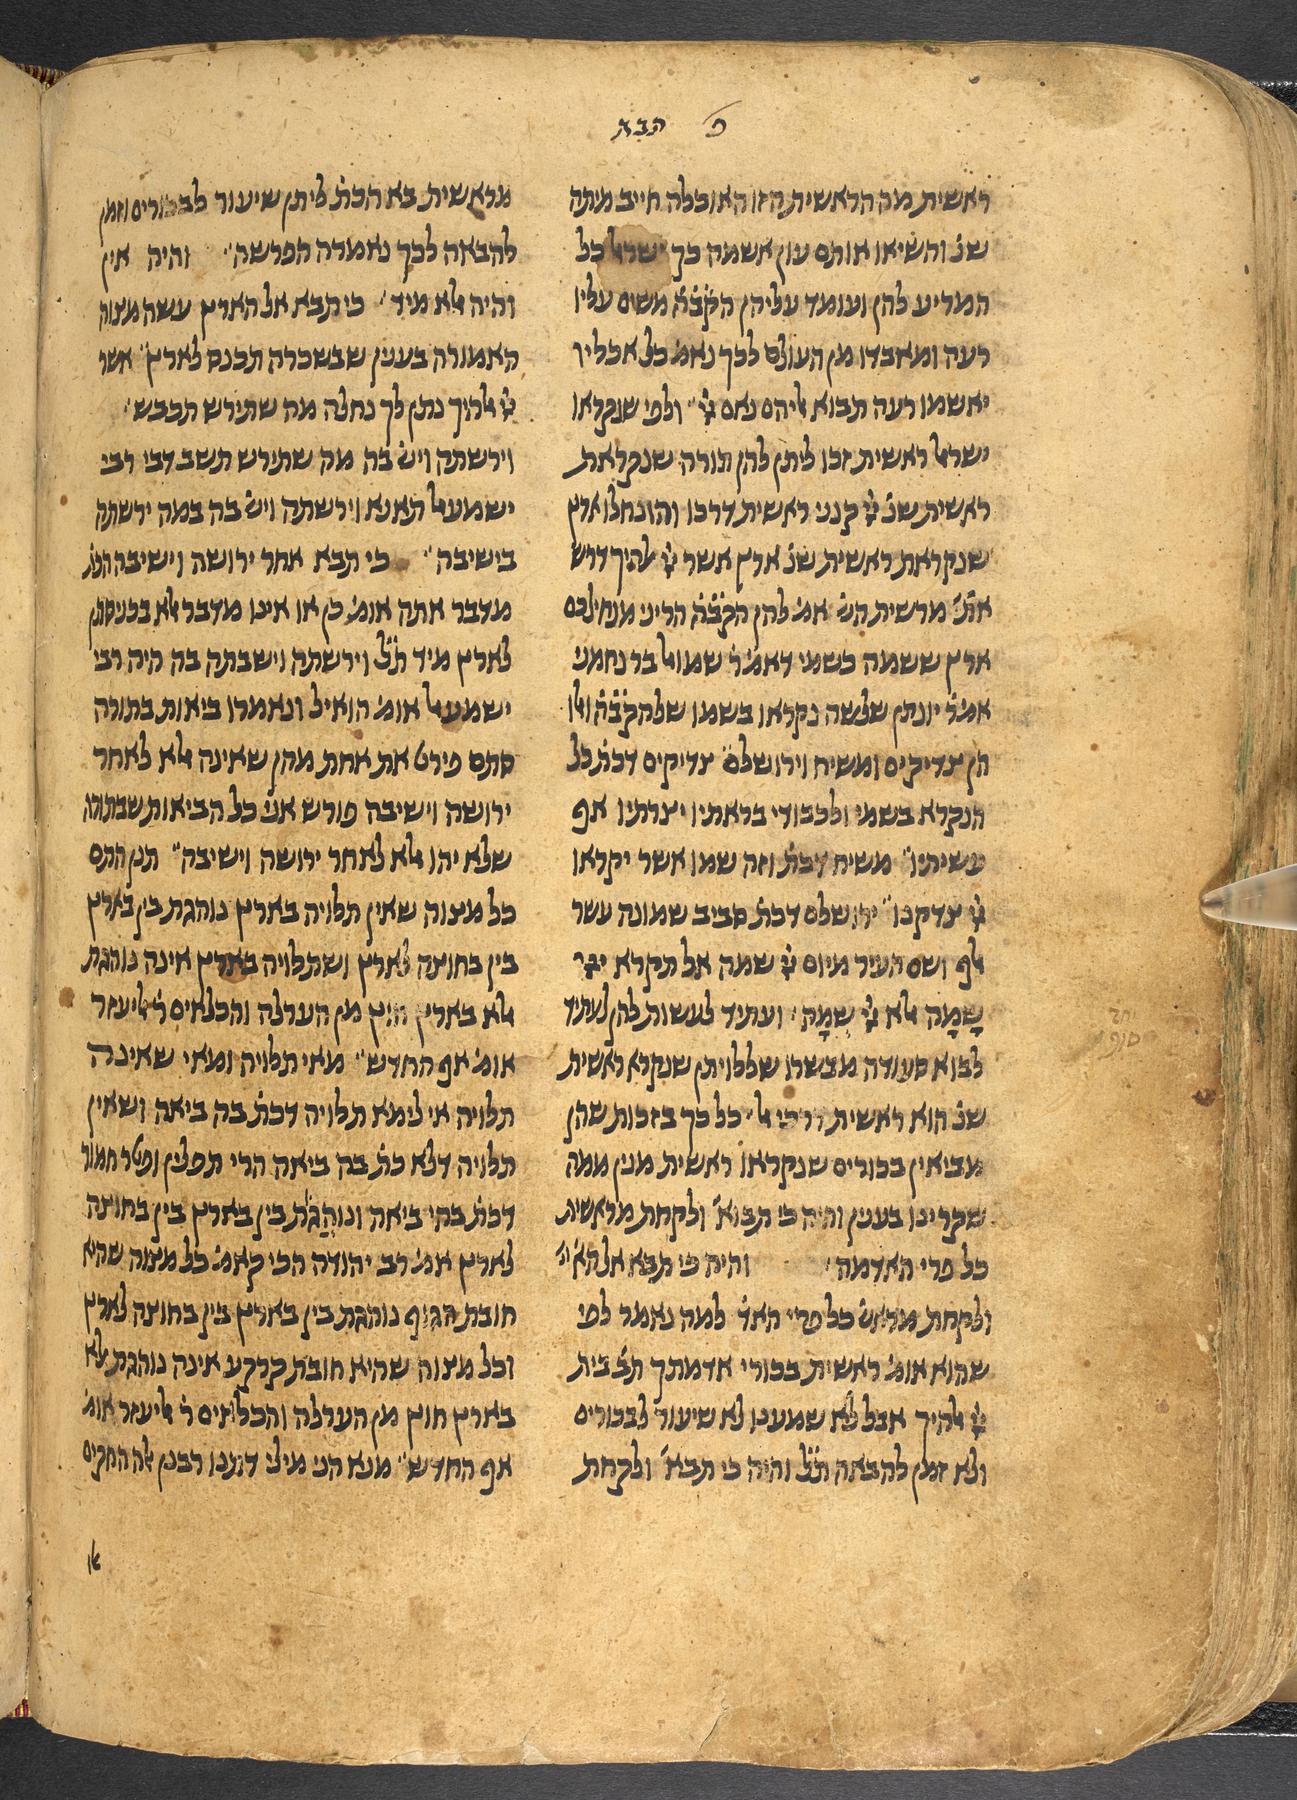 פ׳ תבא
ראשית מה הראשית הזו האוכלה חייב מיתה
שנ׳ והשיאו אותם עון אשמה כך ישראל כל
המריע להן ועומד עליהן הקב״ה משים עליו
רעה ומאבדו מן העולם לכך נאמ׳ כל אכליו
יאשמו רעה תבוא אליהם נאם ייי׳ ולפי שנקראו
ישראל ראשית זכו ליתן להן תורה שנקראת
ראשית שנ׳ ייי קנני ראשית דרכו והונחלו ארץ
שנקראת ראשית שנ׳ ארץ אשר ייי אלהיך דרש
את׳ מרשית הש׳ אמ׳ להן הקב״ה הריני מנחילכם
ארץ ששמה כשמי דאמ׳ר שמואל בר נחמני
אמ׳ר יונתן שלשה נקראו בשמו שלהקב״ה ואלו
הן צדיקים ומשיח וירושלם צדיקים דכת׳ כל
הנקרא בשמי ולכבודי בראתיו יצרתיו אף
עשיתיו׳ משיח דכת׳ וזה שמו אשר יקראו
ייי צדקנו׳ ירושלם דכת׳ סביב שמונה עשר
אלף ושם העיר מיום ייי שמה אל תקרא ייי
שָמָה אלא ייי שְמָהּ׳ ועתיד לעשות להן לעתיד
לבוא סעודה מבשרו שללויתן שנקרא ראשית
שנ׳ הוא ראשית דרכי אל׳ כל כך בזכות שהן
מביאין בכורים שנקראו ראשית מנין ממה
שקרינו בענין והיה כי תבוא׳ ולקחת מראשית
כל פרי האדמה׳ והיה כי תבא אל הא׳
ולקחת מראש׳ כל פרי האד׳ למה נאמר לפי
שהוא אומ׳ ראשית בכורי אדמתך תב׳ בית
ייי אלהיך אבל לא שמענו לא שיעור לבכורים
ולא זמן להבאה ת״ל והיה כי תבא׳ ולקחת
מראשית בא הכת׳ ליתן שיעור לבכורים וזמן
להבאה לכך נאמרה הפרשה׳ והיה אין
והיה אלא מיד׳ כי תבא אל הארץ עשה מצוה
האמורה בענין שבשכרה תכנס לארץ׳ אשר
ייי אלהיך נתן לך נחלה מה שתירש תכבש׳
וירשתה ויש׳ בה מה שתירש תשב דבי רבי
ישמעאל תאנא וירשתה ויש׳ בה במה ירשתה
בישיבה׳ כי תבא אחר ירושה וישיבה הכת׳
מדבר אתה אומ׳ כן או אינו מדבר אלא בכניסתן
לארץ מיד ת״ל וירשתה וישבתה בה היה רבי
ישמעאל אומ׳ הואיל ונאמרו ביאות בתורה
סתם פירט את אחת מהן שאינה אלא לאחר
ירושה וישיבה פורש אני כל הביאות שבתורה
שלא יהו אלא לאחר ירושה וישיבה׳ תנן התם
כל מצוה שאין תלויה בארץ נוהגת בין בארץ
בין בחוצה לארץ ושתלויה בארץ אינה נוהגת
אלא בארץ חוץ מן הערלה והכלאים ר׳ אליעזר
אומ׳ אף החדש׳ מאי תלויה ומאי שאינה
תלויה אי לימא תלויה דכת׳ בה ביאה ושאין
תלויה דלא כת׳ בה ביאה הרי תפלין ופטר חמור
דכת׳ בהי ביאה ונוהגת בין בארץ בין בחוצה
לארץ אמ׳ רב יהודה הכי קאמ׳ כל מצוה שהיא
חובת הגוף נוהגת בין בארץ בין בחוצה לארץ
וכל מצוה שהיא חובת קרקע אינה נוהגת אלא
בארץ חוץ מן הערלה והכלאים ר׳ אליעזר אומ׳
אף החדש׳ מנא הני מילי דתנו רבנן אלה החקים